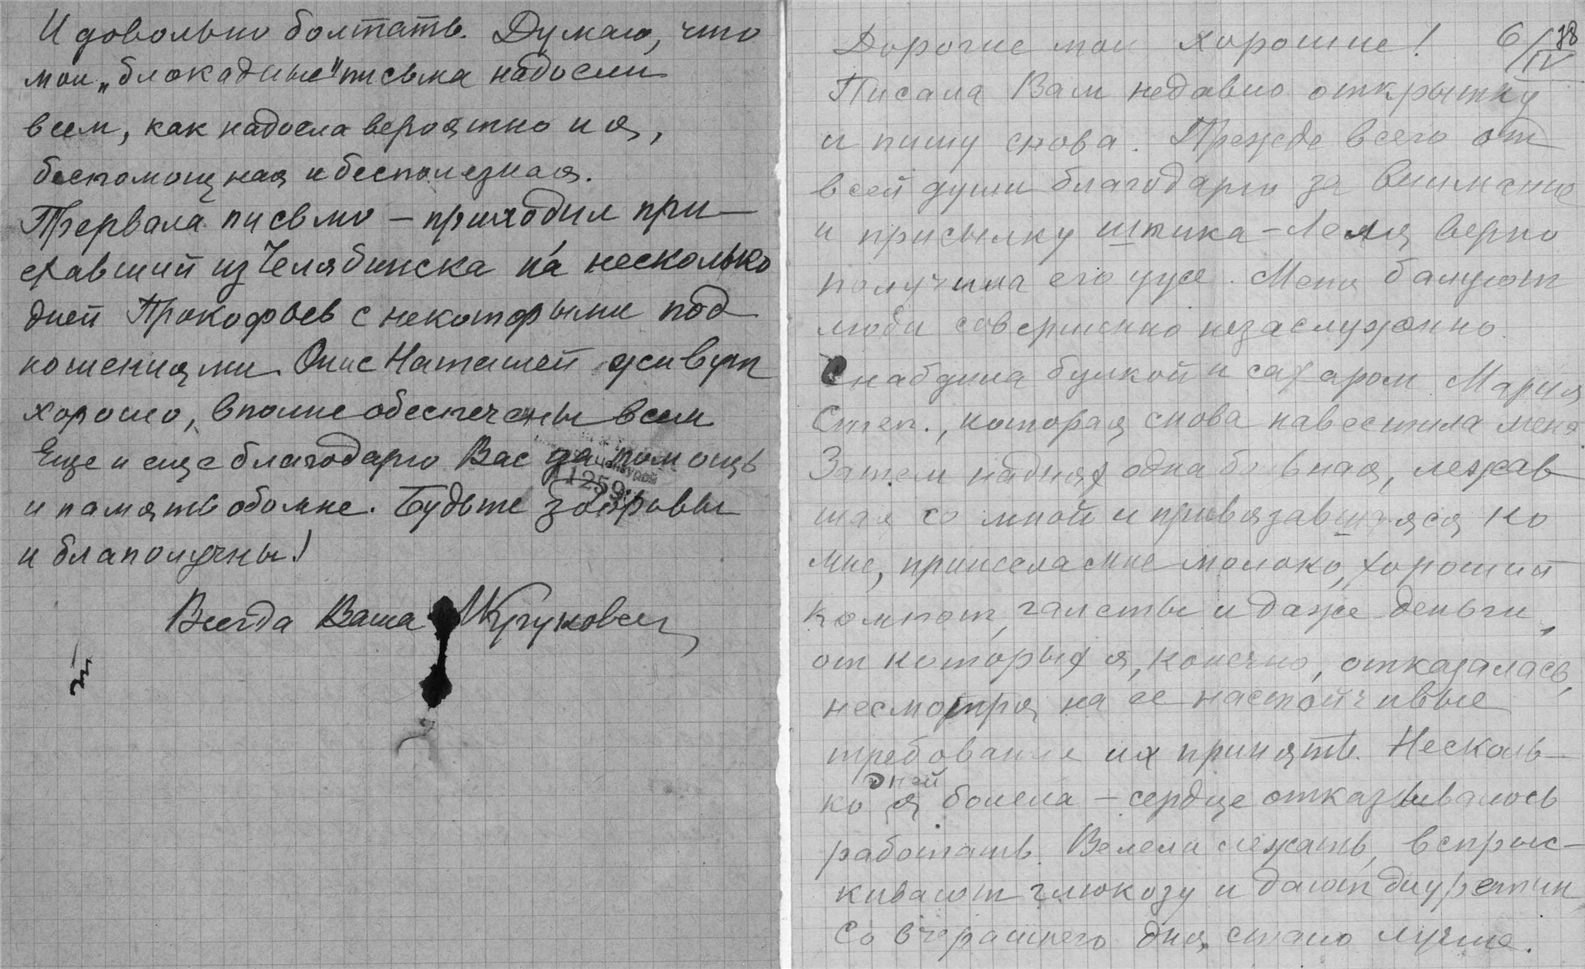 И довольно болтать. Думаю, что
мои „блокадные" письма надоели
всем, как надоела вероятно и я,
беспомощная и бесполезная.
Прервала письмо — приходил при-
ехавший из Челябинска на несколько
дней Прокофьев с некоторыми под-
ношениями. Они с Наташей живут
хорошо, вполне обеспечены всем
Еще и еще благодарю Вас за помощь
и память обо мне. Будьте здоровы
и благополучны!
Всегда Ваша
1259
Дорогие мои хорошие! 6/IV
Писала Вам недавно открытку
и пишу снова. Прежде всего от
всей души благодарю за внимание
и присылку шпика — Леля верно
получила его уже. Меня балуют
люди совершенно незаслуженно.
Снабдила булкой и сахаром Мария
Степ., которая снова навестила меня
Затем на днях одна больная, лежав-
шая со мной и привязавшаяся ко
мне, принесла мне молоко, хороший
компот, галеты и даже деньги,
от которых я, конечно, отказалась,
несмотря на ее настойчивые
требования их принять. Несколь-
ко дней я болела — сердце отказывалось
работать. Велели лежать, вспрыс-
кивают глюкозу и дают диуретин
Со вчерашнего дня стало лучше.